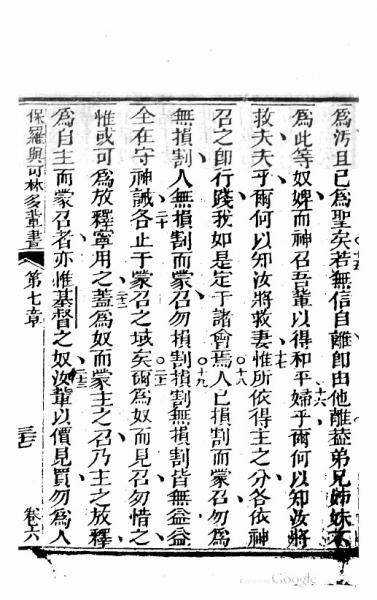 爲汚且已爲聖矣若無信自離卽由他離葢弟兄姊妹不
爲此等奴婢而神召吾輩以得和平婦乎爾何以知汝將
救夫夫乎爾何以知汝將救妻惟所依得主之分各依神
召之卽行踐我如是定于諸會焉人已損割而蒙召勿爲
無損割人無損割而蒙召勿損割損割無損割皆無益益
全在守神誡各止于蒙召之域矣爾爲奴而見召勿惜之
惟或可爲放釋寧用之葢爲奴而蒙主之召乃主之放釋
爲自主而蒙召者亦惟基督之奴汝輩以價見買勿爲人
保羅與可林多輩書 第七章 卷六
十六
十七
十八
十九
二十
二十一
二十二
二十三
Google